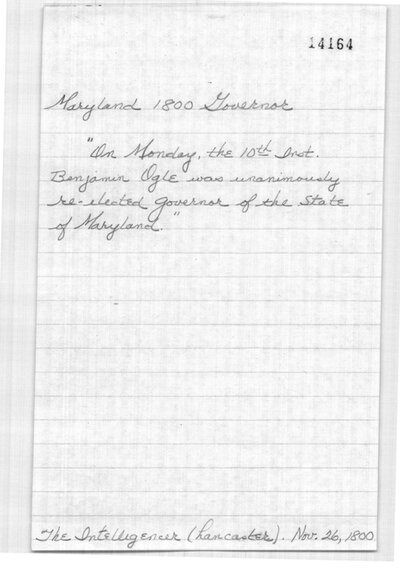 14164
Maryland 1800 Governor
"On Monday, the 10th Inst.
Benjamin Ogle was unanimously
re-elected Governor of the State
of Maryland."
"The Intelligencer (Lancaster). Nov. 26, 1800